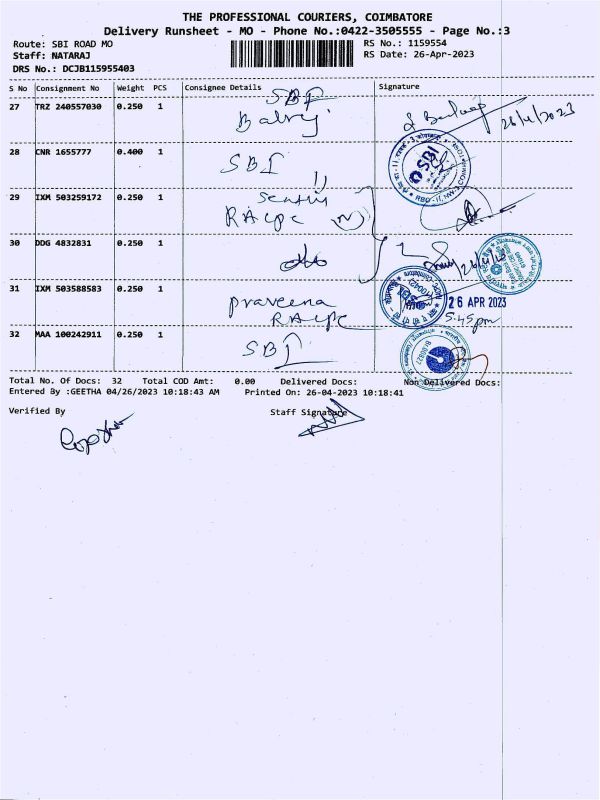 THE PROFESSIONAL COURIERS, COIMBATORE
Delivery Runsheet - MO - Phone No.:0422-3505555 - Page No.:3
Route: SBI ROAD MO
RS No.: 1159554
Staff: NATARAJ
RS Date: 26-Apr-2023
DRS No.: DCJB115955403
S No Consignment No Weight PCS Consignee Details Signature
27 TRZ 240557030 0.250 1 SBI
Balraj 26/4/2023
28 CNR 1655777 0.400 1 SBI
SBI
29 IXM 503259172 0.250 1
RACPC
30 DDG 4832831 0.250 1
31 IXM 503588583 0.250 1 Praveena
RACPC
26 APR 2023
5.45pm
32 MAA 100242911 0.250 1 SBI
Total No. Of Docs: 32 Total COD Amt: 0.00 Delivered Docs: Non Delivered Docs:
Entered By :GEETHA 04/26/2023 10:18:43 AM Printed On: 26-04-2023 10:18:41
Verified By Staff Signature